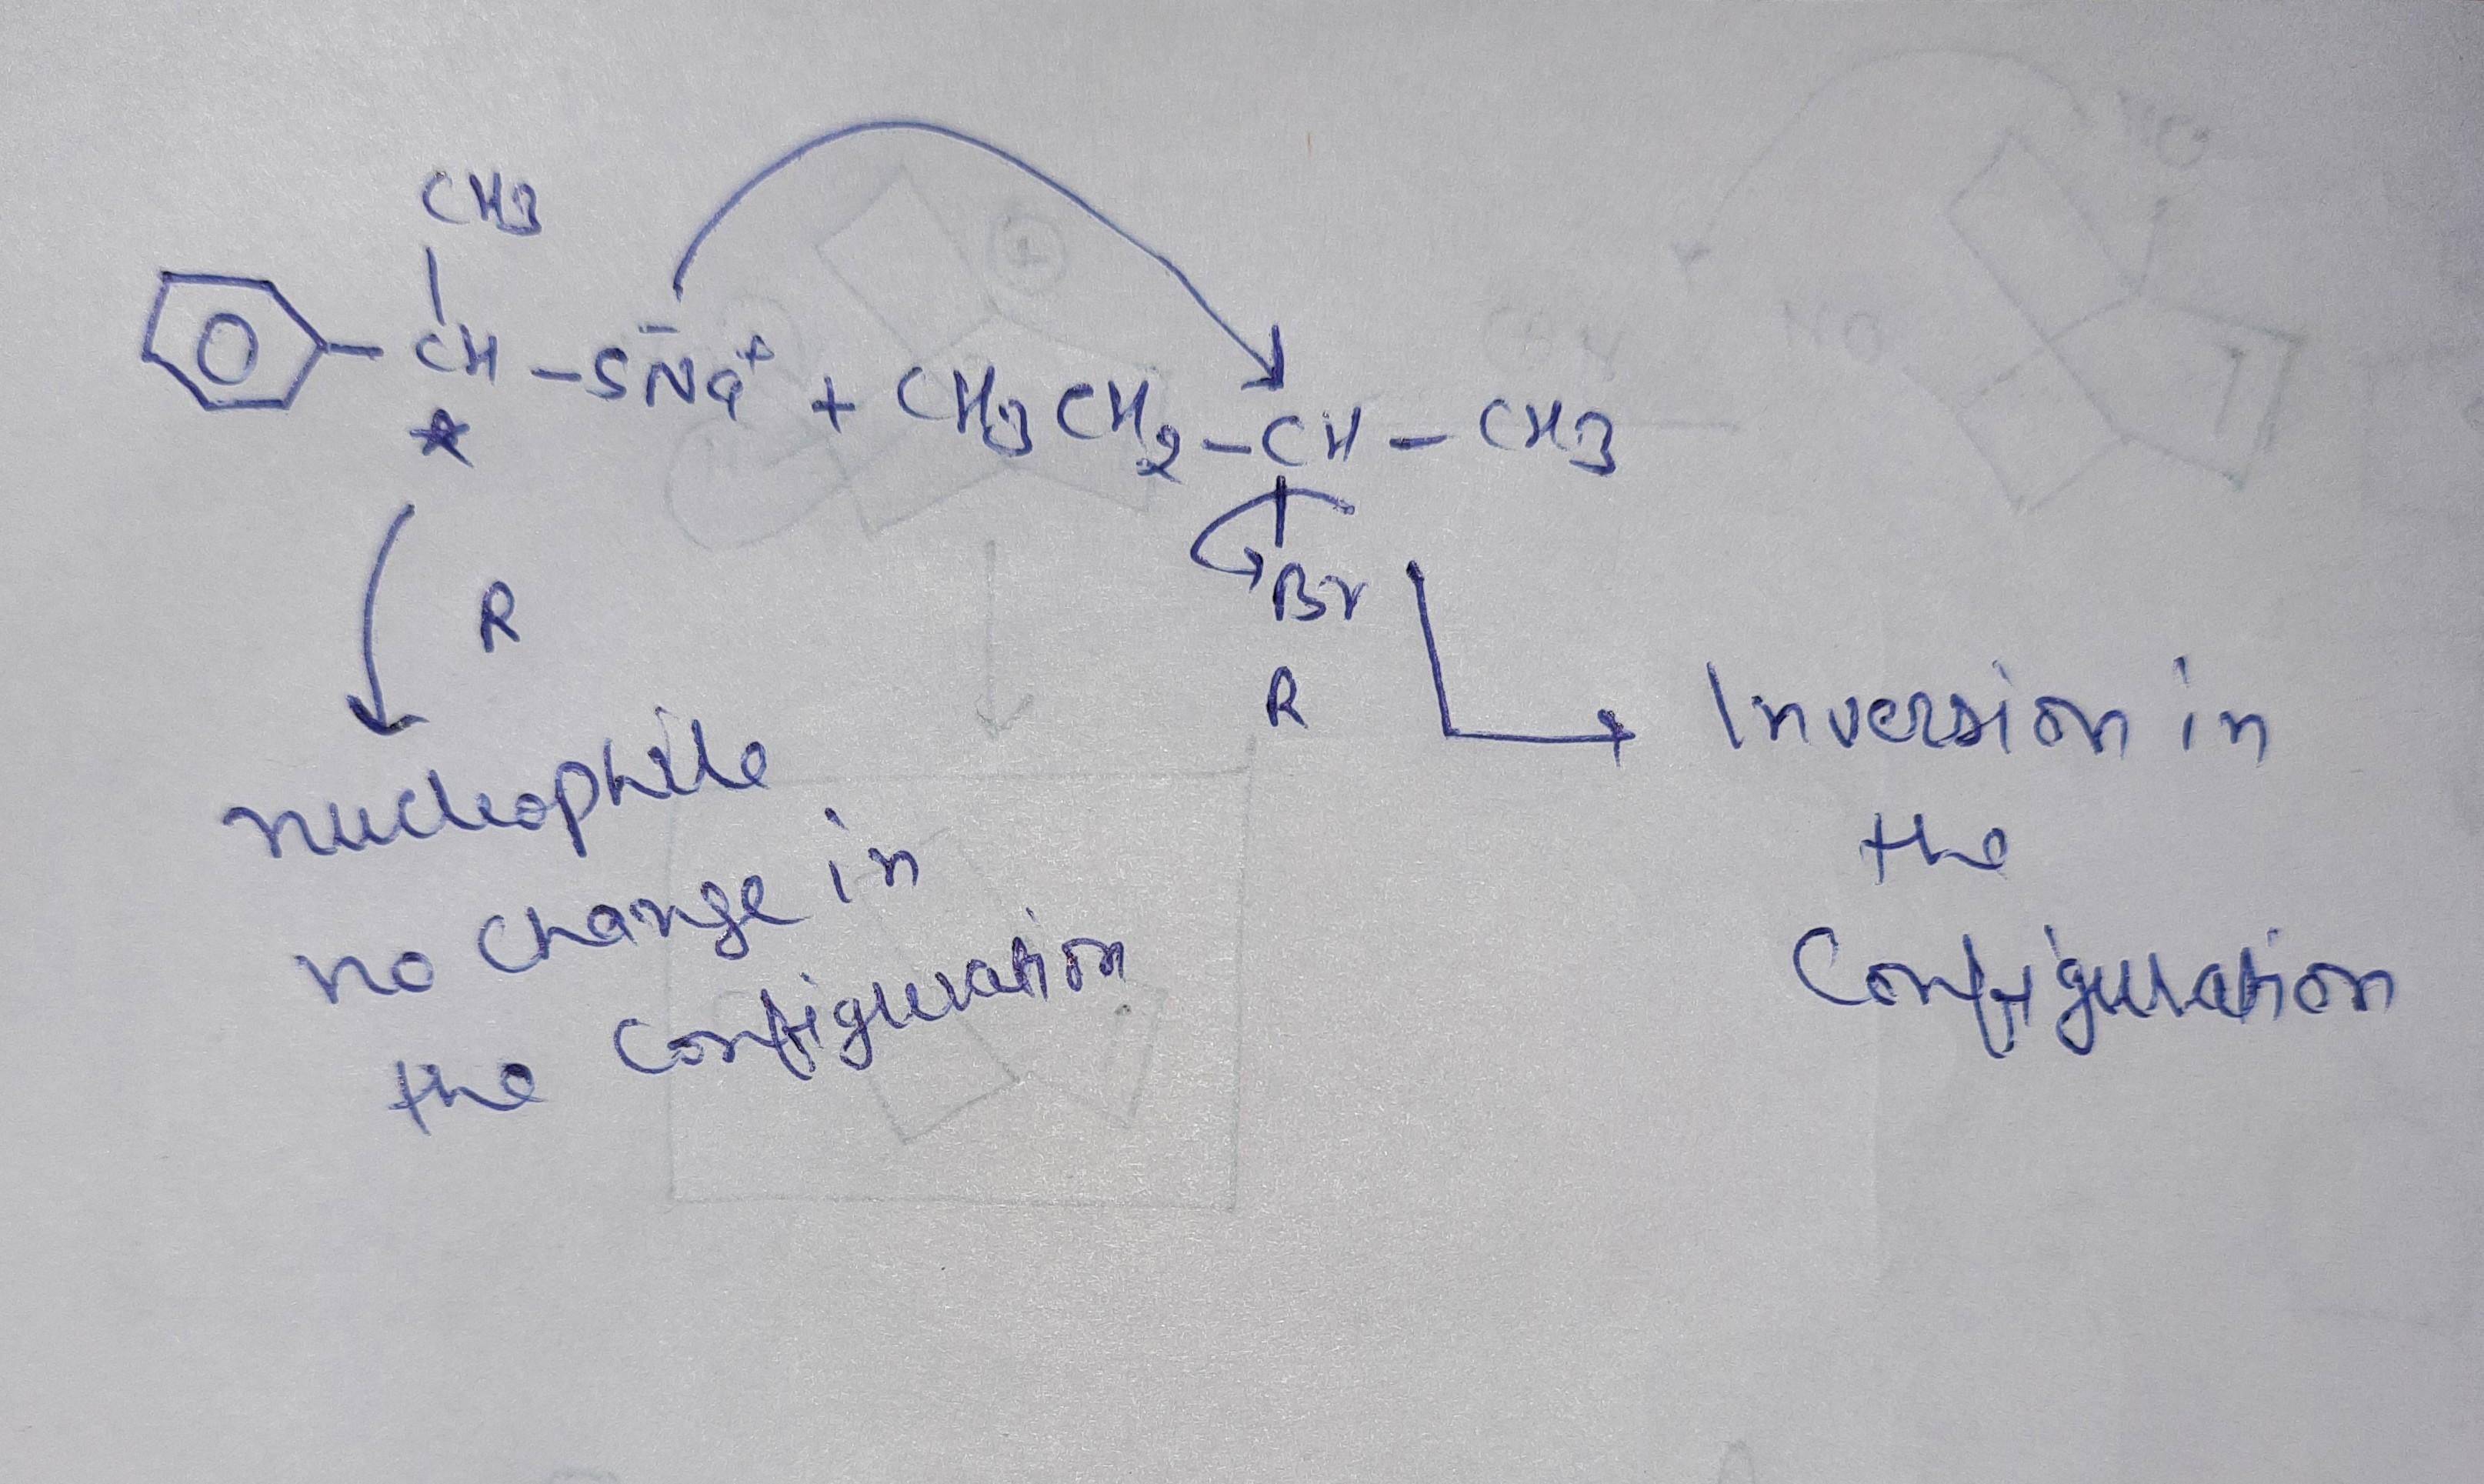 CH3
CH - S⁻Na⁺ + CH3 CH2 - CH - CH3
*
Br
R
R
nucleophile
no change in
the configuration
Inversion in
the
Configuration